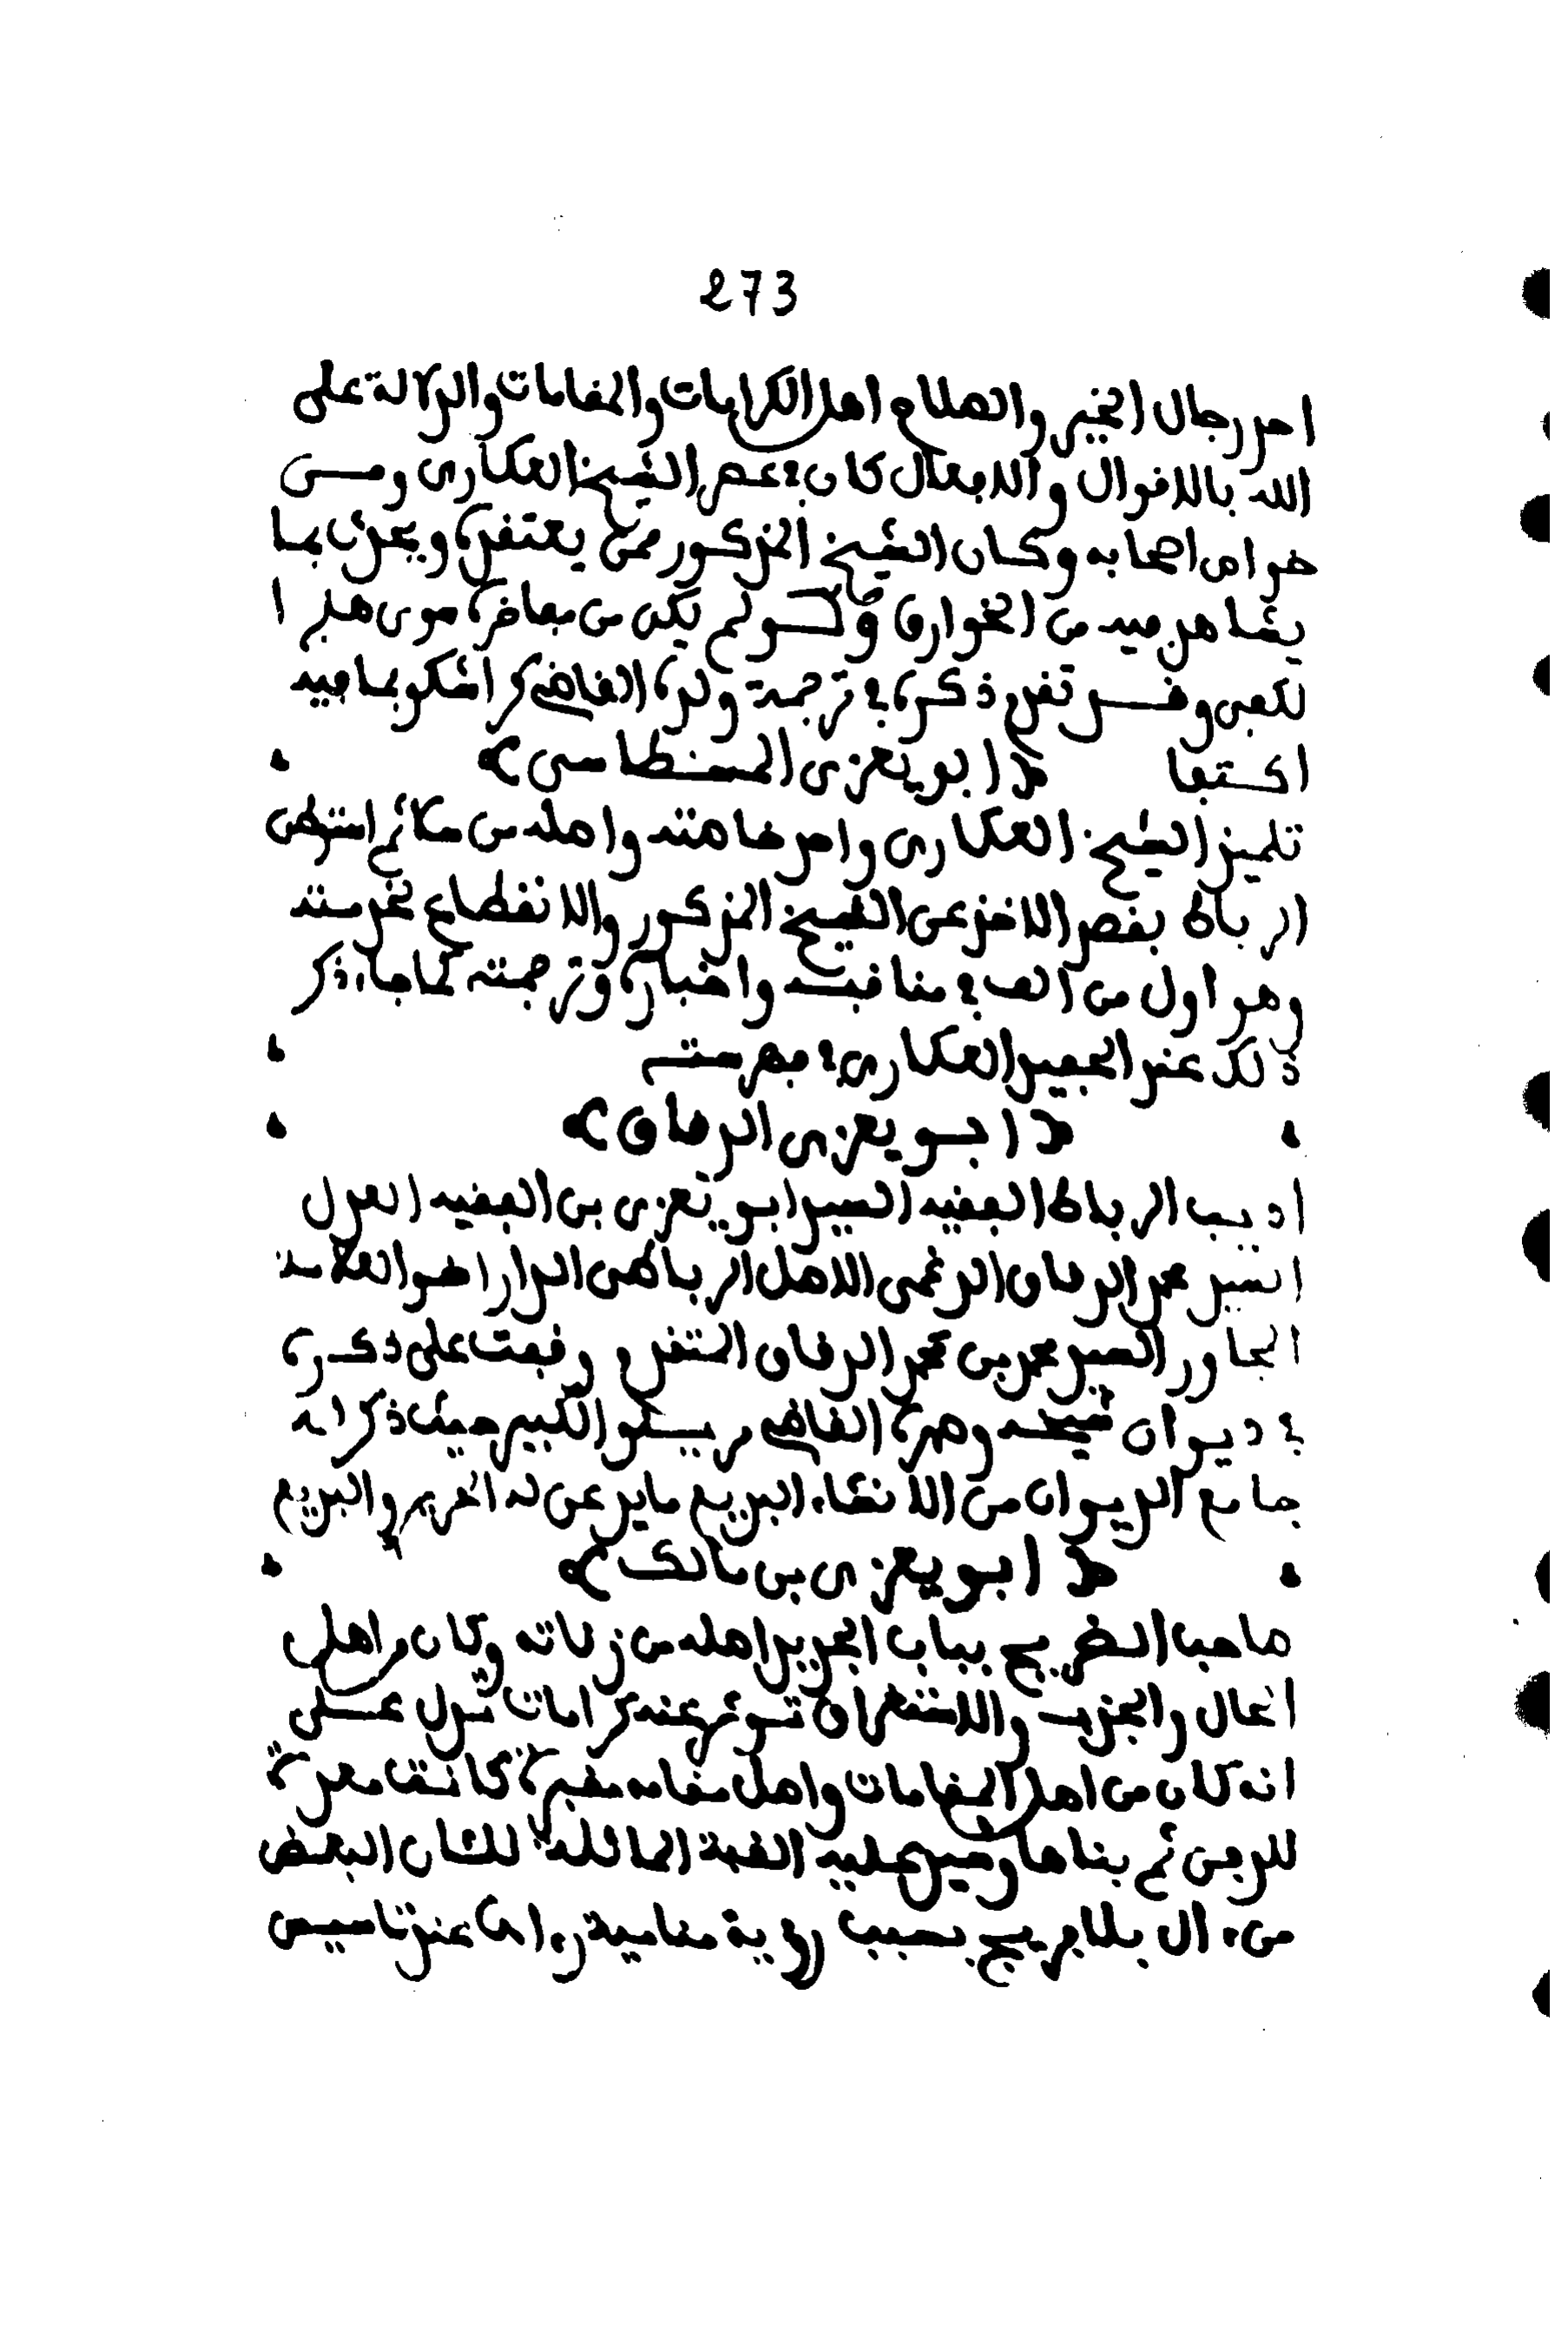 273
احد رجال الخير والصلاح اهل الكرامات والمقامات والدلالة على
الله بالاقوال والافعال كان في عصر الشيخ العكاري ومن
خواص اصحابه وكان الشيخ المذكور ممن يعتقده ويحدث بما
يشاهد فيه من الخوارق ولو لم يكن من مفاخره سوى هذا
لكفى وقد تقدم ذكره في ترجمة ولده القاضي اشكو بما فيه
اكتفا ﴿ ابو يعزى المسطاسي ﴾
تلميذ الشيخ العكاري واحد خاصته واصله من استوطن
الرباط بقصد الاخذ عن الشيخ المذكور والانقطاع لخدمته
وهو اول من الف في مناقبه واخباره وترجمته كما جاء ذكر
ذلك عند الحفيد العكاري في فهرسته
﴿ ابو يعزى الدقاق ﴾
اديب الرباط الفقيه السيد ابو يعزى بن الفقيه العدل
السيد محمد الدقاق الدغمي الاصل الرباطي الدار اخو العلامة
المجاور السيد محمد بن محمد الدقاق المتقدم وقفت على ذكره
في ديوان شيخه وصهره القاضي مريسكو الكبير حيث ذكر له
جامع الديوان من الانشاء البديع ما يدعن له الحرير والبديع
﴿ ابو يعزى بن مالك ﴾
صاحب الضريح بباب الجديد اصله من زناته وكان من اهل
الحال والجذب والاستغراق تؤثر عنه كرامات تدل على
انه كان من اهل المقامات واصل مقامه مقبرة كانت معدة
للدفن ثم بناها وشيد عليه القبة الماثلة للشان البعض
من ءال بلافريج بسبب رؤية منامية رءاها عند تاسيس